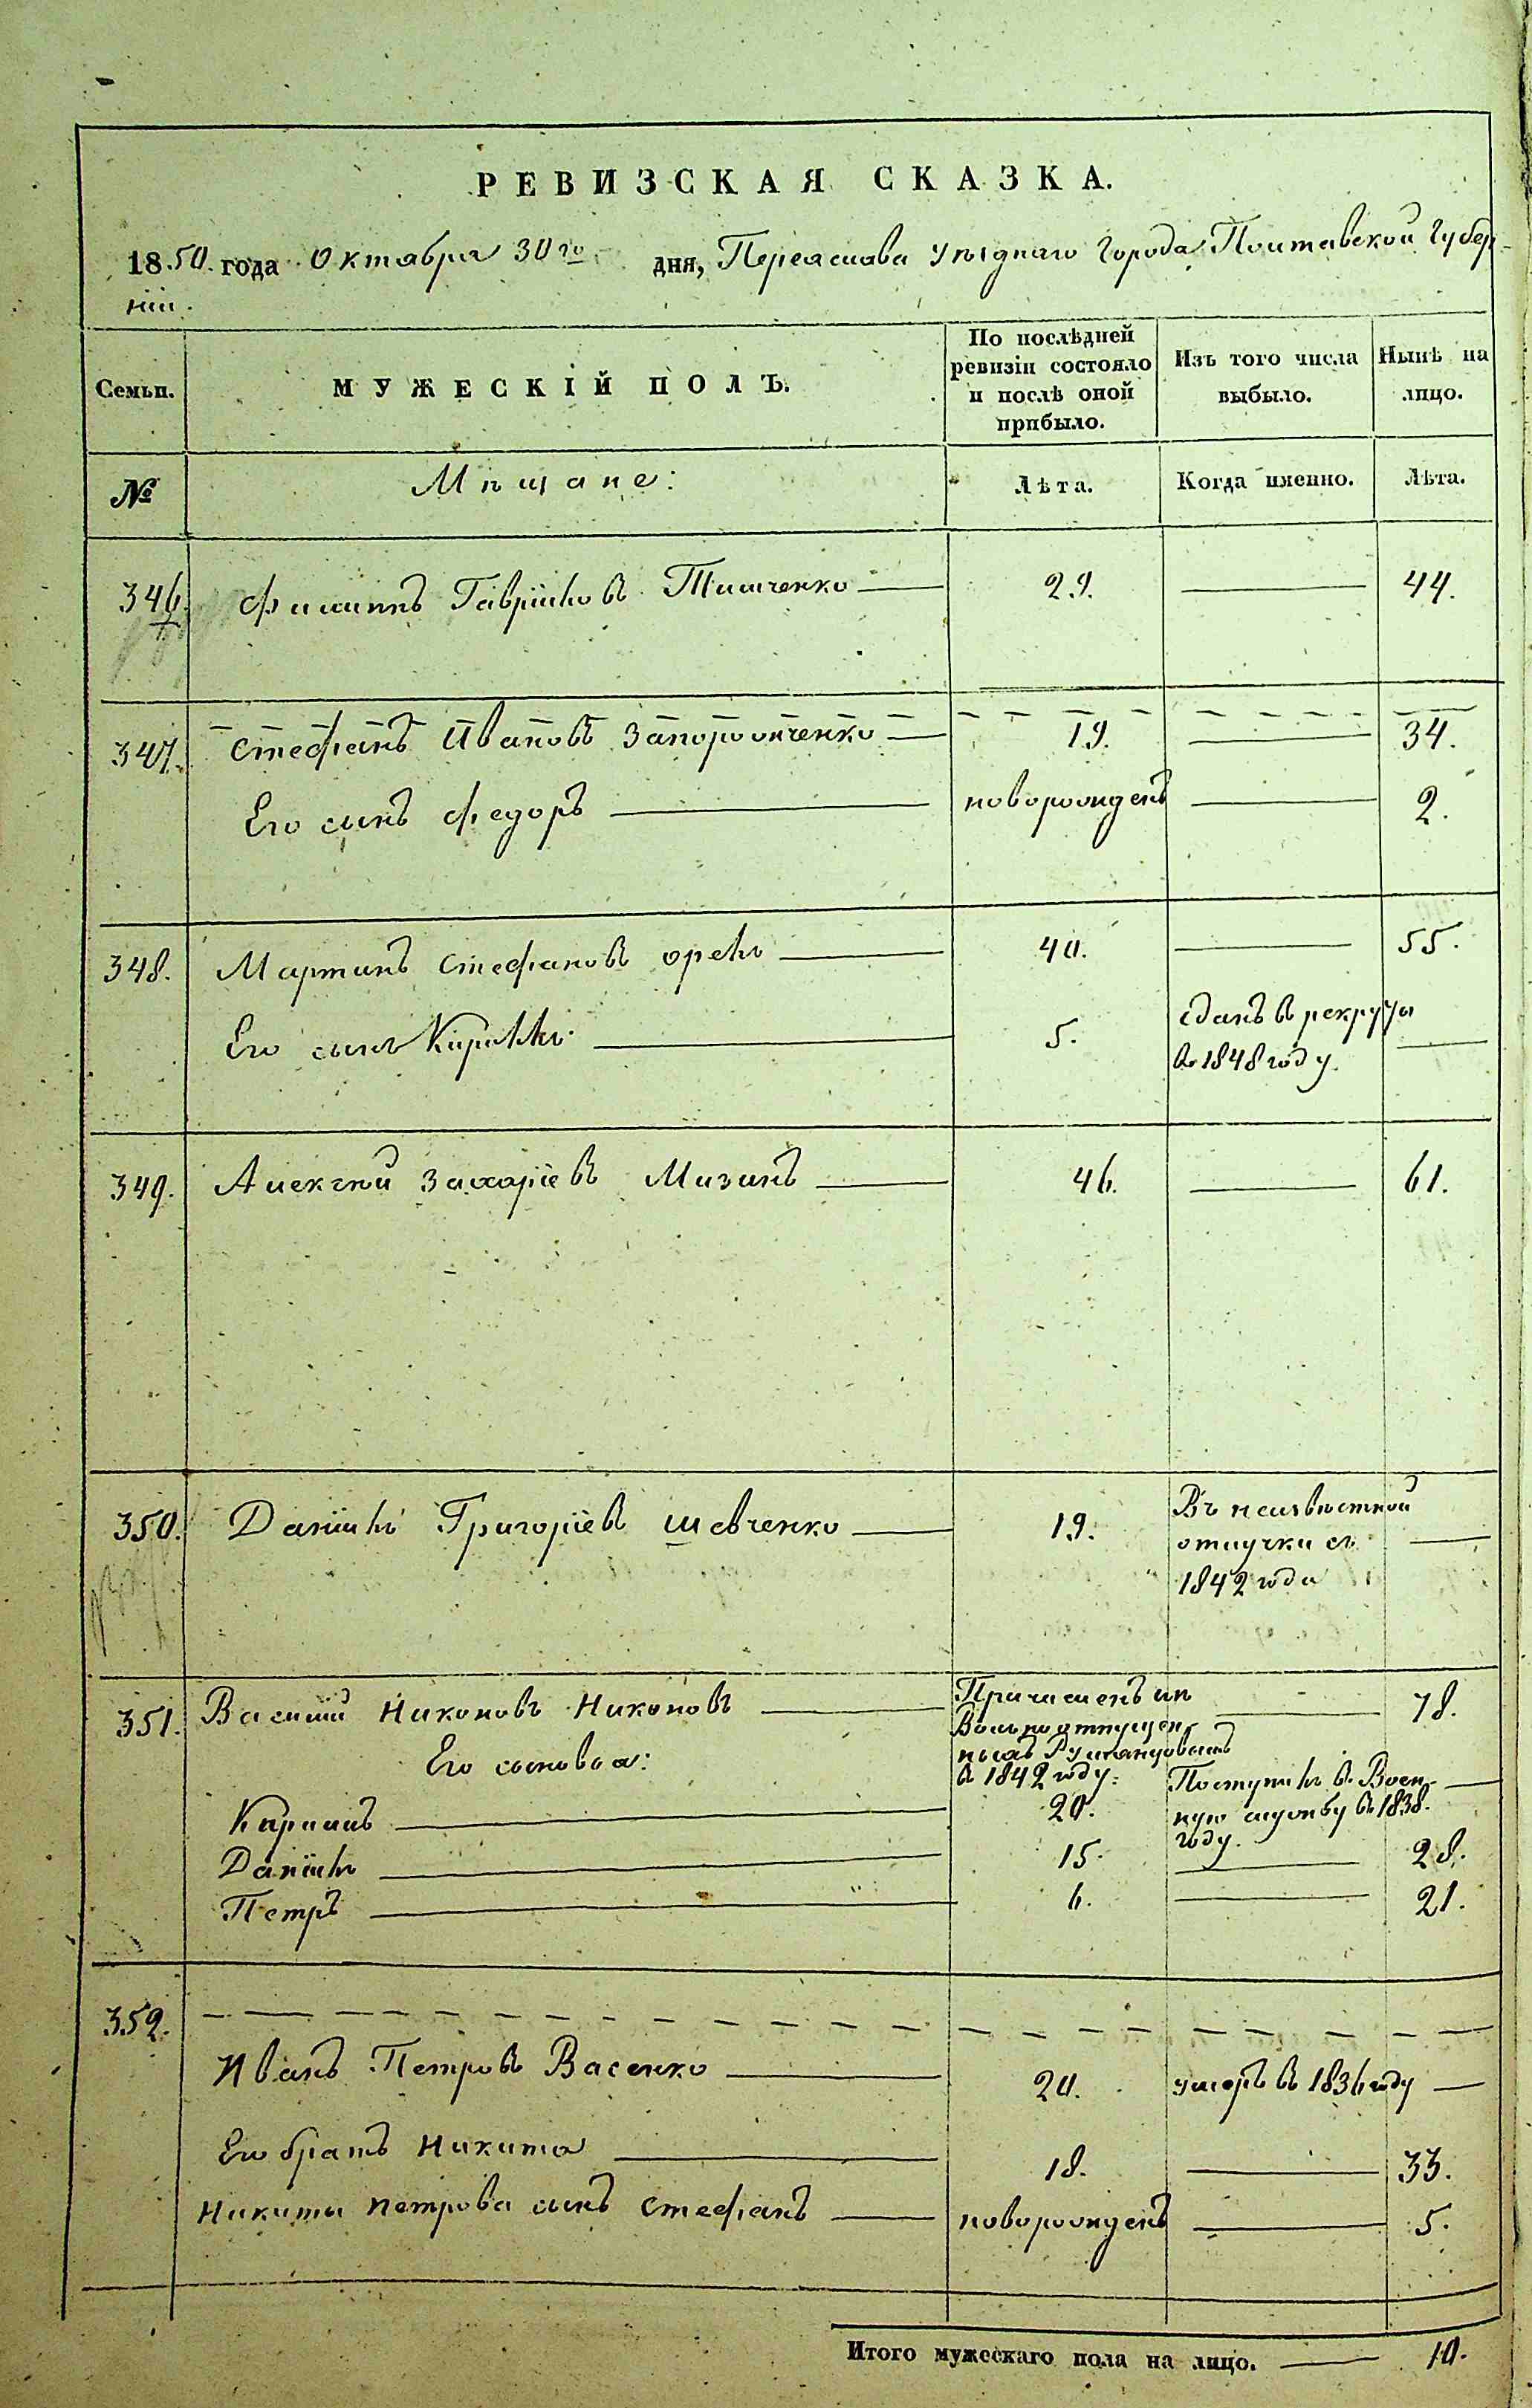 РЕВИЗСКАЯ СКАЗКА.
1850 года Октября 30го дня, Переяслава Уѣзднаго Города Полтавской Губер-
ніи.
Семьи. МУЖЕСКІЙ ПОЛЪ. По послѣдней ревизіи состояло и послѣ оной прибыло. Изъ того числа выбыло. Нынѣ на лицо.
№ Мѣщане: Лѣта. Когда именно. Лѣта.
346. Филиппъ Гавріиловъ Тимченко 29. 44.
347. Стефанъ Ивановъ Запорожченко 19. 34.
Его сынъ Федоръ новорожденъ 2.
348. Мартинъ Стефановъ Орелъ 40. 55.
Его сынъ Кириллъ 5. сданъ въ рекруты
въ 1848 году.
349. Алексѣй Захаріевъ Мизинъ 46. 61.
350. Даніилъ Григоріевъ Шевченко 19. Въ неизвѣстной
отлучки съ
1842 года
351. Василій Никоновъ Никоновъ Причисленъ изъ 78.
Вольноотпущен-
Его сыновья: ныхъ Румянцовыхъ
въ 1842 году.
Карпъ 20. Поступилъ въ Воен-
ную службу въ 1838.
году.
Даніилъ 15. 28.
Петръ 6. 21.
352.
Иванъ Петровъ Васенко 20. умеръ въ 1836 году
Его братъ Никита 18. 33.
Никиты Петрова сынъ Стефанъ новорожденъ 5.
Итого мужескаго пола на лицо. 10.